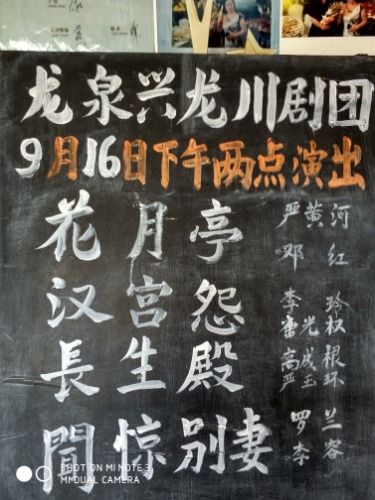 龙泉兴龙川剧团
9月16日下午两点演出
花月亭
严黄河
邓 红
汉宫怨
李 玲
雷光权
長生殿
高成根
严玉环
罗 兰
李 容
闻惊别妻
SHOT ON MI NOTE 3
MI DUAL CAMERA